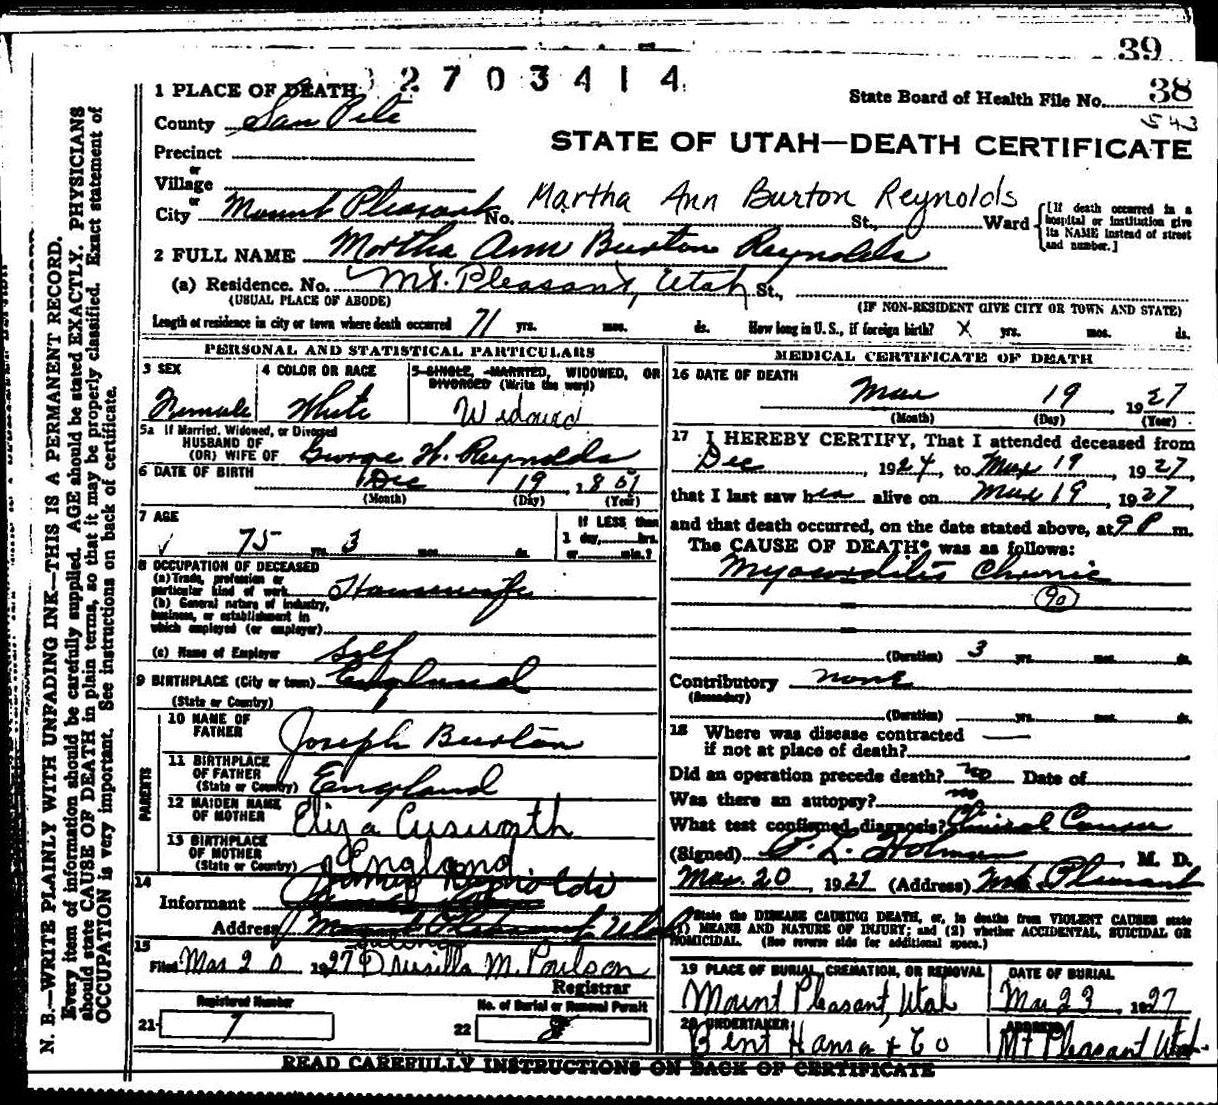 39
2703414
1 PLACE OF DEATH
State Board of Health File No. 38
County San Pete
STATE OF UTAH—DEATH CERTIFICATE
Precinct
or
Village
or
City Mount Pleasant No. St., Ward
Martha Ann Burton Reynolds
[If death occurred in a
hospital or institution give
its NAME instead of street
and number.]
2 FULL NAME Martha Ann Burton Reynolds
(a) Residence. No. Mt. Pleasant, Utah St.,
(USUAL PLACE OF ABODE) (IF NON-RESIDENT GIVE CITY OR TOWN AND STATE)
Length of residence in city or town where death occurred 71 yrs. mos. ds. How long in U. S., if foreign birth? X yrs. mos. ds.
PERSONAL AND STATISTICAL PARTICULARS
3 SEX 4 COLOR OR RACE 5 SINGLE, MARRIED, WIDOWED, OR
DIVORCED (Write the word)
Female White Widowed
5a If Married, Widowed, or Divorced
HUSBAND OF
(OR) WIFE OF George H. Reynolds
6 DATE OF BIRTH Dec 19, 1851
(Month) (Day) (Year)
7 AGE If LESS than
1 day, hrs.
75 yrs. 3 mos. ds. or min.?
8 OCCUPATION OF DECEASED
(a) Trade, profession or
particular kind of work Housewife
(b) General nature of industry,
business, or establishment in
which employed (or employer)
(c) Name of Employer Self
9 BIRTHPLACE (City or town) England
(State or Country)
PARENTS
10 NAME OF
FATHER Joseph Burton
11 BIRTHPLACE
OF FATHER
(State or Country) England
12 MAIDEN NAME
OF MOTHER Eliza Cusworth
13 BIRTHPLACE
OF MOTHER
(State or Country) England
14
Informant James Reynolds
Address Mount Pleasant, Utah
15
Filed Mar 20 1927 Drusilla M. Poulson
Registrar
Registered Number No. of Burial or Removal Permit
21- 7 22 8
MEDICAL CERTIFICATE OF DEATH
16 DATE OF DEATH
Mar 19, 1927
(Month) (Day) (Year)
17 I HEREBY CERTIFY, That I attended deceased from
Dec, 1924, to Mar 19 1927
that I last saw her alive on Mar 19, 1927
and that death occurred, on the date stated above, at 9 P m.
The CAUSE OF DEATH* was as follows:
Myocarditis Chronic
90
(Duration) 3 yrs. mos. ds.
Contributory none
(Secondary)
(Duration) yrs. mos. ds.
18 Where was disease contracted
if not at place of death?
Did an operation precede death? no Date of
Was there an autopsy? no
What test confirmed diagnosis? Clinical
(Signed) Holman, M. D.
Mar. 20 1927 (Address) Mt. Pleasant
*State the DISEASE CAUSING DEATH, or, in deaths from VIOLENT CAUSES state
(1) MEANS AND NATURE OF INJURY; and (2) whether ACCIDENTAL, SUICIDAL OR
HOMICIDAL. (See reverse side for additional space.)
19 PLACE OF BURIAL, CREMATION, OR REMOVAL DATE OF BURIAL
Mount Pleasant, Utah Mar 23, 1927
20 UNDERTAKER ADDRESS
Bent Hansen & Co Mt Pleasant Utah
READ CAREFULLY INSTRUCTIONS ON BACK OF CERTIFICATE
N. B.—WRITE PLAINLY WITH UNFADING INK—THIS IS A PERMANENT RECORD.
Every item of information should be carefully supplied. AGE should be stated EXACTLY. PHYSICIANS
should state CAUSE OF DEATH in plain terms, so that it may be properly classified. Exact statement of
OCCUPATION is very important. See instructions on back of certificate.